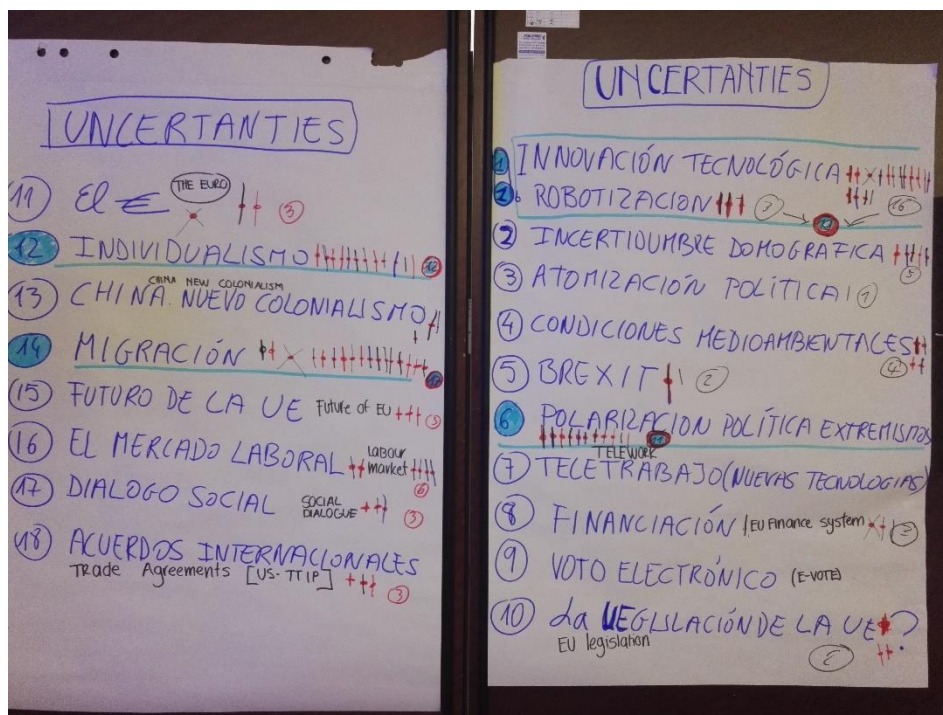 UNCERTANTIES
11 El € THE EURO 3
12 INDIVIDUALISMO 12
CHINA NEW COLONIALISM
13 CHINA. NUEVO COLONIALISMO
14 MIGRACIÓN
15 FUTURO DE LA UE Future of EU 3
16 EL MERCADO LABORAL LABOUR market 6
17 DIALOGO SOCIAL SOCIAL DIALOGUE 3
18 ACUERDOS INTERNACIONALES
TRADE Agreements [US-TTIP] 3
UNCERTANTIES
1 INNOVACIÓN TECNOLÓGICA
2 ROBOTIZACION 3 16
2 INCERTIDUMBRE DOMOGRAFICA 5
3 ATOMIZACIÓN POLÍTICA 1
4 CONDICIONES MEDIOAMBIENTALES 4
5 BREXIT 2
6 POLARIZACION POLÍTICA EXTREMISMOS
TELEWORK
7 TELETRABAJO (NUEVAS TECNOLOGIAS)
8 FINANCIACIÓN (EU Finance system 2
9 VOTO ELECTRÓNICO (E-VOTE)
10 La LEGISLACIÓN DE LA UE ?
EU legislation 2